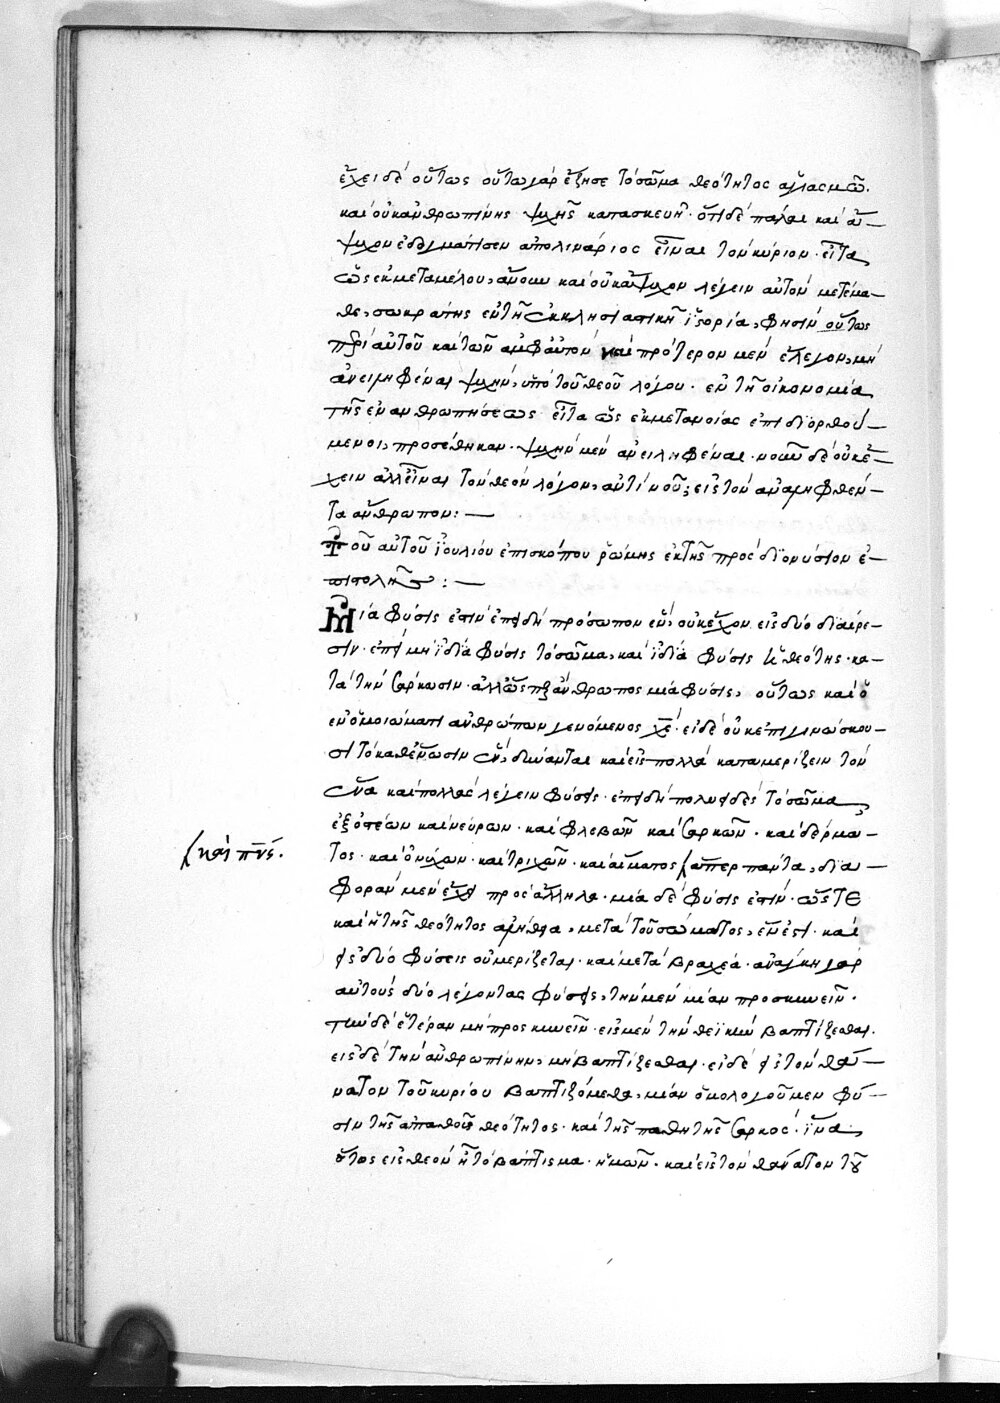 ἔχει δὲ οὕτως οὕτω γὰρ ἔζησε τὸ σῶμα θεότητος ἁγιασμῶ.
καὶ οὐκ ἀνθρωπίνης ψυχῆς κατασκευῆ. ὅτι δὲ πάλαι καὶ ἄ-
ψυχον ἐδογμάτισεν ἀπολινάριος εἶναι τὸν κύριον. εἶτα
ὡς ἐκ μεταμέλου, ἄνουν καὶ οὐκ ἄψυχον λέγειν αὐτὸν μετέμα-
θε, σωκράτης ἐν τῇ ἐκκλησιαστικῇ ἱστορία, φησὶν οὕτως
περὶ αὐτοῦ καὶ τῶν ἀμφ' αὐτὸν καὶ πρότερον μὲν ἔλεγον, μὴ
ἀνειληφέναι ψυχὴν, ὑπὸ τοῦ θεοῦ λόγου. ἐν τῇ οἰκονομία
τῆς ἐνανθρωπήσεως εἶτα ὡς ἐκ μετανοίας ἐπιδιορθού-
μενοι, προσέθηκαν. ψυχὴν μὲν ἀνειληφέναι. νοῦν δὲ οὐκ ἔ-
χειν ἀλλ' εἶναι τὸν θεὸν λόγον, ἀντὶ νοῦ, εἰς τὸν ἀναληφθέν-
τα ἄνθρωπον: —
Τοῦ αὐτοῦ ἰουλίου ἐπισκόπου ῥώμης ἐκ τῆς πρὸς διονύσιον ἐ-
πιστολῆς : —
Μία φύσις ἐστὶν ἐπειδὴ πρόσωπον ἓν, οὐκ ἔχον εἰς δύο διαίρε-
σιν. ἐπεὶ μὴ ἰδία φύσις τὸ σῶμα, καὶ ἰδία φύσις ἡ θεότης. κα-
τὰ τὴν σάρκωσιν. ἀλλ' ὥσπερ ἄνθρωπος μία φύσις, οὕτως καὶ ὁ
ἐν ὁμοιώματι ἀνθρώπων γενόμενος χς. εἰ δὲ οὐκ ἐπιγινώσκου-
σι τὸ καθ' ἕνωσιν ἓν, δύνανται καὶ εἰς πολλὰ καταμερίζειν τὸν
ἕνα καὶ πολλὰς λέγειν φύσεις. ἐπειδὴ πολυειδὲς τὸ σῶμα
ἐξ ὀστέων καὶ νεύρων. καὶ φλεβῶν καὶ σαρκῶν. καὶ δέρμα-
τος. καὶ ὀνύχων. καὶ τριχῶν. καὶ αἵματος ἅπερ πάντα, δια-
καὶ πνς.
φορὰν μὲν ἔχει πρὸς ἄλληλα. μία δὲ φύσις ἐστίν. ὥστε
καὶ ἡ τῆς θεότητος ἀλήθεια, μετὰ τοῦ σώματος, ἕν ἐστι. καὶ
εἰς δύο φύσεις οὐ μερίζεται. καὶ μετὰ βραχέα. ἀνάγκη γὰρ
αὐτοὺς δύο λέγοντας φύσεις, τὴν μὲν μίαν προσκυνεῖν.
τὴν δὲ ἑτέραν μὴ προσκυνεῖν. εἰς μὲν τὴν θεϊκὴν βαπτίζεσθαι.
εἰς δὲ τὴν ἀνθρωπίνην, μὴ βαπτίζεσθαι. εἰ δὲ εἰς τὸν θά-
νατον τοῦ κυρίου βαπτιζόμεθα, μίαν ὁμολογοῦμεν φύ-
σιν τῆς ἀπαθοῦς θεότητος. καὶ τῆς παθητῆς σαρκός. ἵνα
οὕτως εἰς θεὸν ᾖ τὸ βάπτισμα. ἡμῶν. καὶ εἰς τὸν θάνατον τοῦ